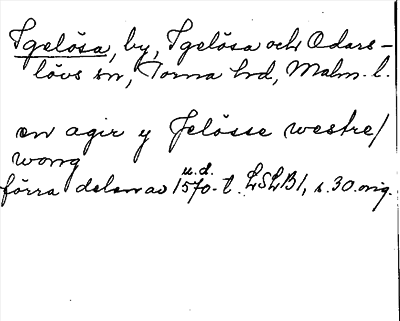 Igelösa, by, Igelösa och Odars-
lövs sn, Torna hd, Malm. l.
en agir y Jelösse westre/
wong
u.d.
förra delen av 1570-t. LSLB1, s. 30. orig.